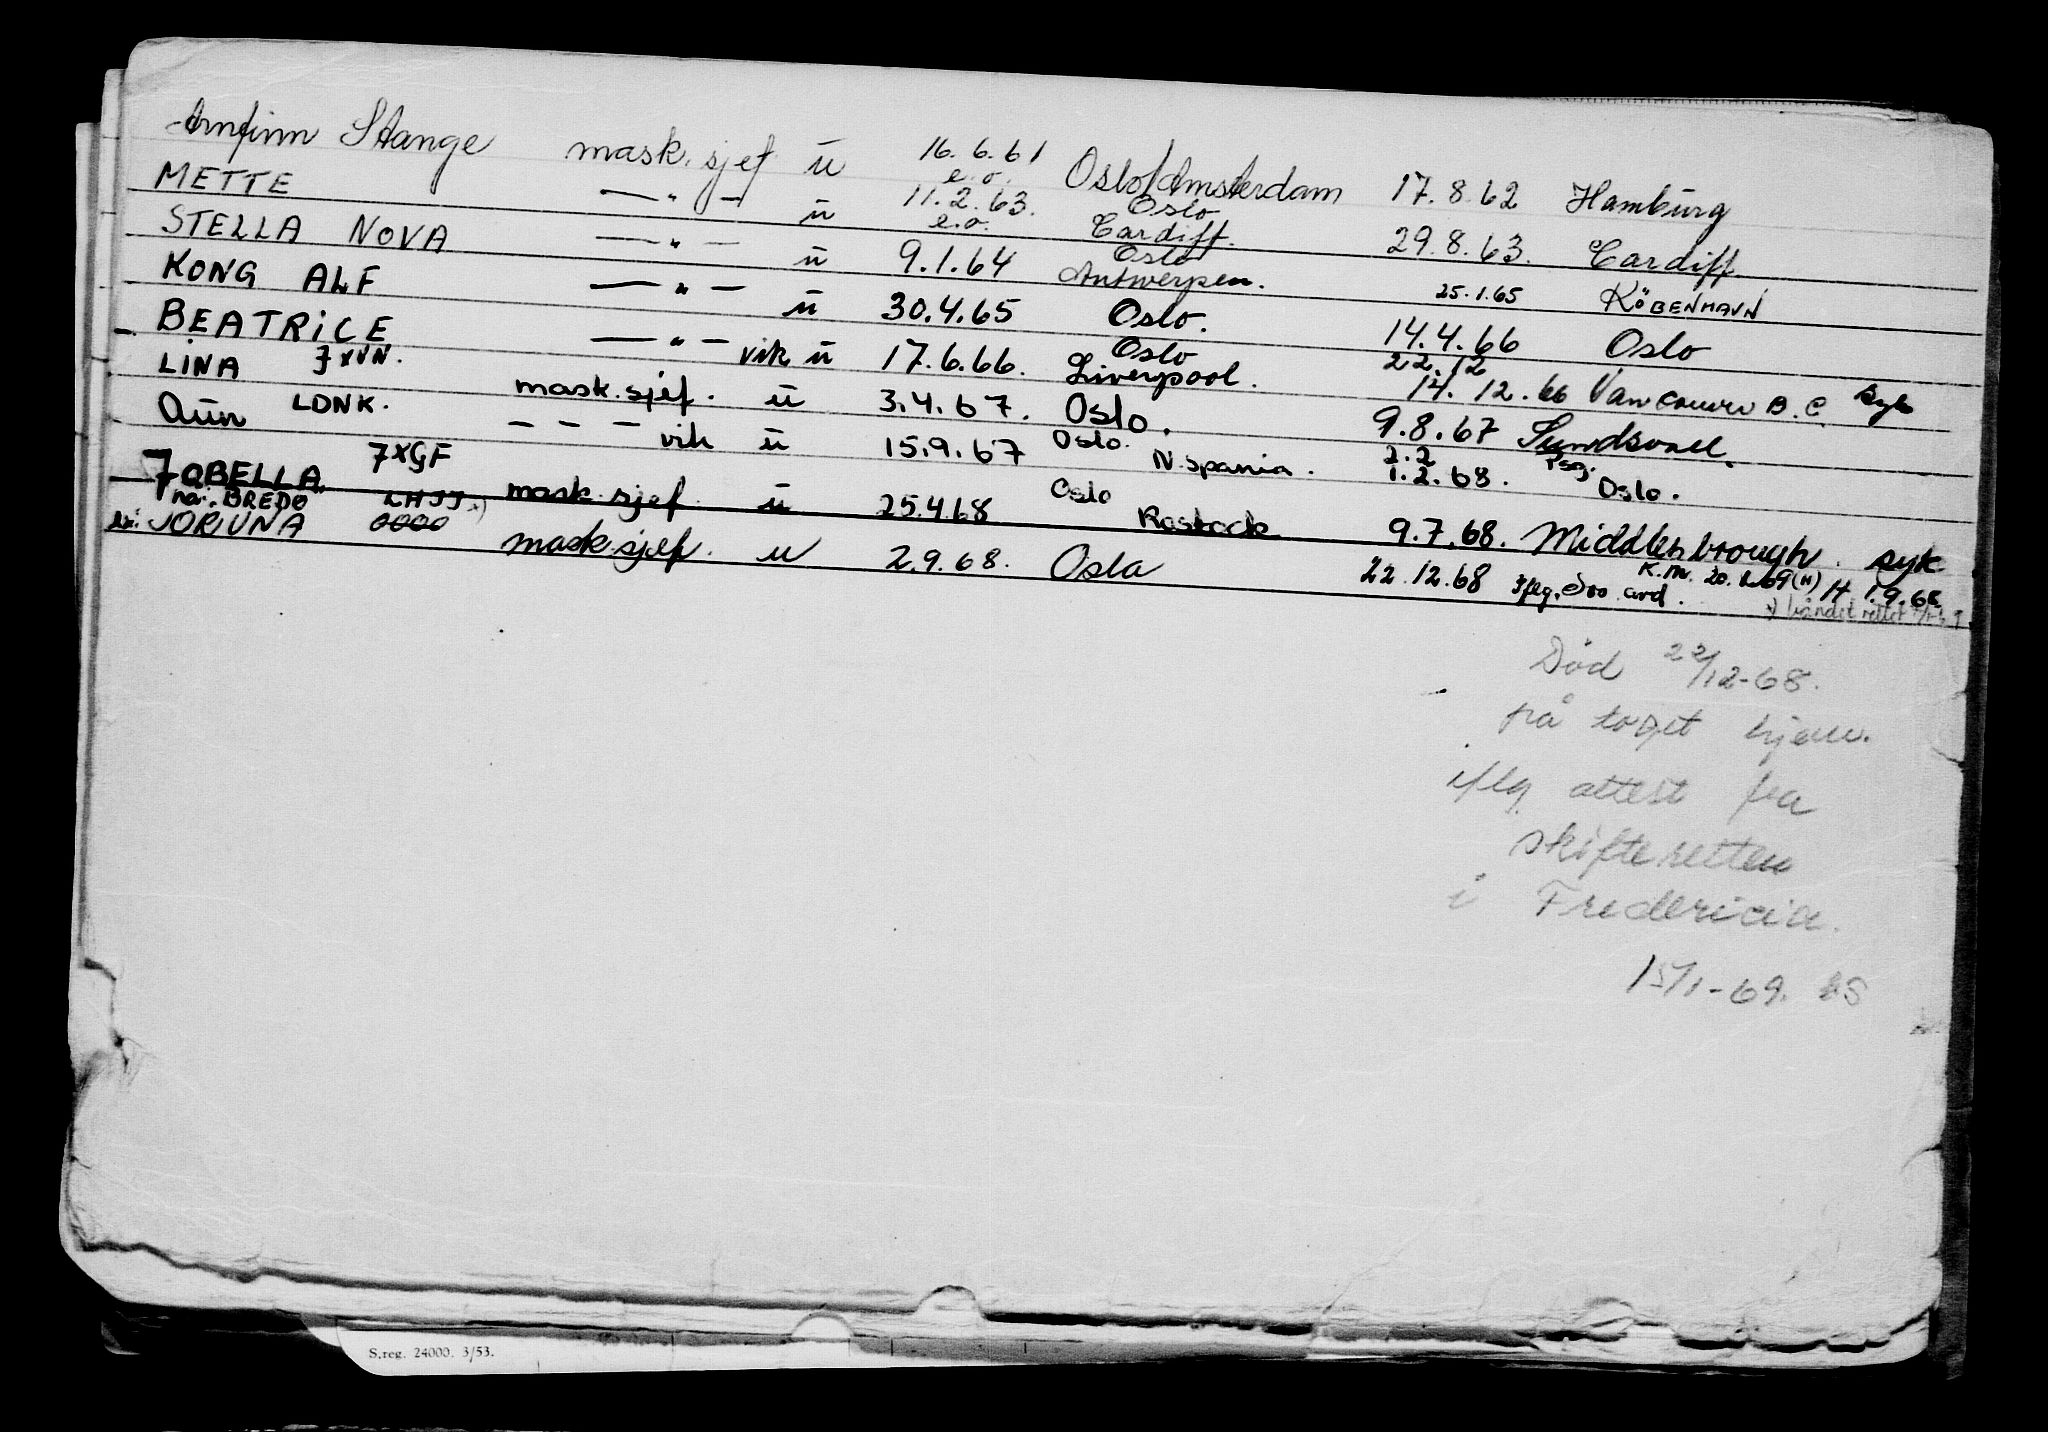 Arnfinn Stange mask. sjef ü 16.6.61 Oslo/Amsterdam 17.8.62 Hamburg
METTE — " — ü e.o. 11.2.63. Oslo Cardiff. 29.8.63. Cardiff.
STELLA NOVA — " — ü e.o. 9.1.64 Oslo Antwerpen. 25.1.65 KÖBENHAVN
KONG ALF — " — ü 30.4.65 Oslo. 14.4.66 Oslo
BEATRICE — " — vik ü 17.6.66. Oslo Liverpool. 22.12 14.12.66 Vancouver B.C. syk
LINA 7XVN. mask. sjef. ü 3.4.67. Oslo. 9.8.67 Sundsvall.
Aün LDNK. — — — vik ü 15.9.67 Oslo. N. Spania. 2.2 1.2.68. Psg. Oslo.
JOBELLA 7XGF mask. sjef. ü 25.4.68 Oslo Rostock 9.7.68. Middlesbrough. syk
nå: BREDO LHJJ x)
JORUNA mask. sjef. u 2.9.68. Oslo 22.12.68 Iflg. Oso avd. K.m. (H) H 1.9.68
x) båndet rettet
Död 22/12-68.
på toget hjem.
iflg attest fra
skifteretten
i Fredericia.
15/1-69.
S.reg. 24000. 3/53.